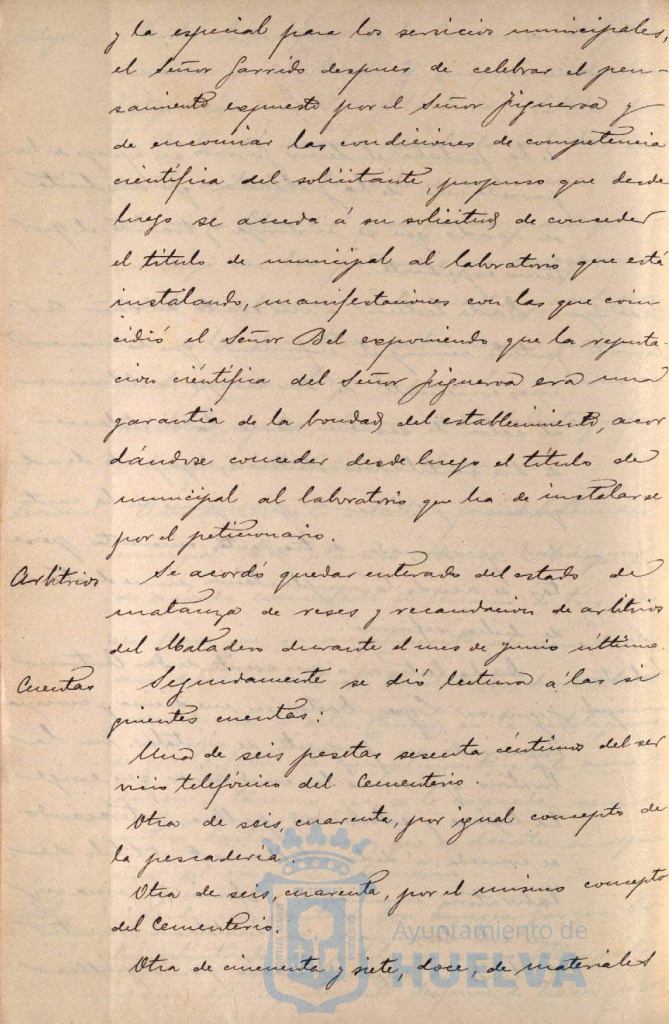 y la especial para los servicios municipales,
el Señor Garrido despues de celebrar el pen-
samiento expuesto por el Señor Figueroa y
de encomiar las condiciones de competencia
científica del solicitante, propuso que desde
luego se acceda á su solicitud de conceder
el título de municipal al laboratorio que está
instalando, manifestaciones con las que coin
cidió el Señor Bel exponiendo que la reputa-
cion científica del Señor Figueroa era una
garantia de la bondad del establecimiento, acor
dándose conceder desde luego el título de
municipal al laboratorio que ha de instalarse
por el peticionario.
Arbitrios Se acordó quedar enterado del estado de
matanza de reses y recaudacion de arbitrios
del Matadero durante el mes de junio último.
Cuentas Seguidamente se dió lectura á las si
guientes cuentas:
Una de seis pesetas sesenta céntimos del ser
vicio telefónico del Cementerio.
Otra de seis, cuarenta, por igual concepto de
la pescadería.
Otra de seis, cuarenta, por el mismo concepto
del Cementerio.
Otra de cincuenta y siete, doce, de materiales
Ayuntamiento de
HUELVA